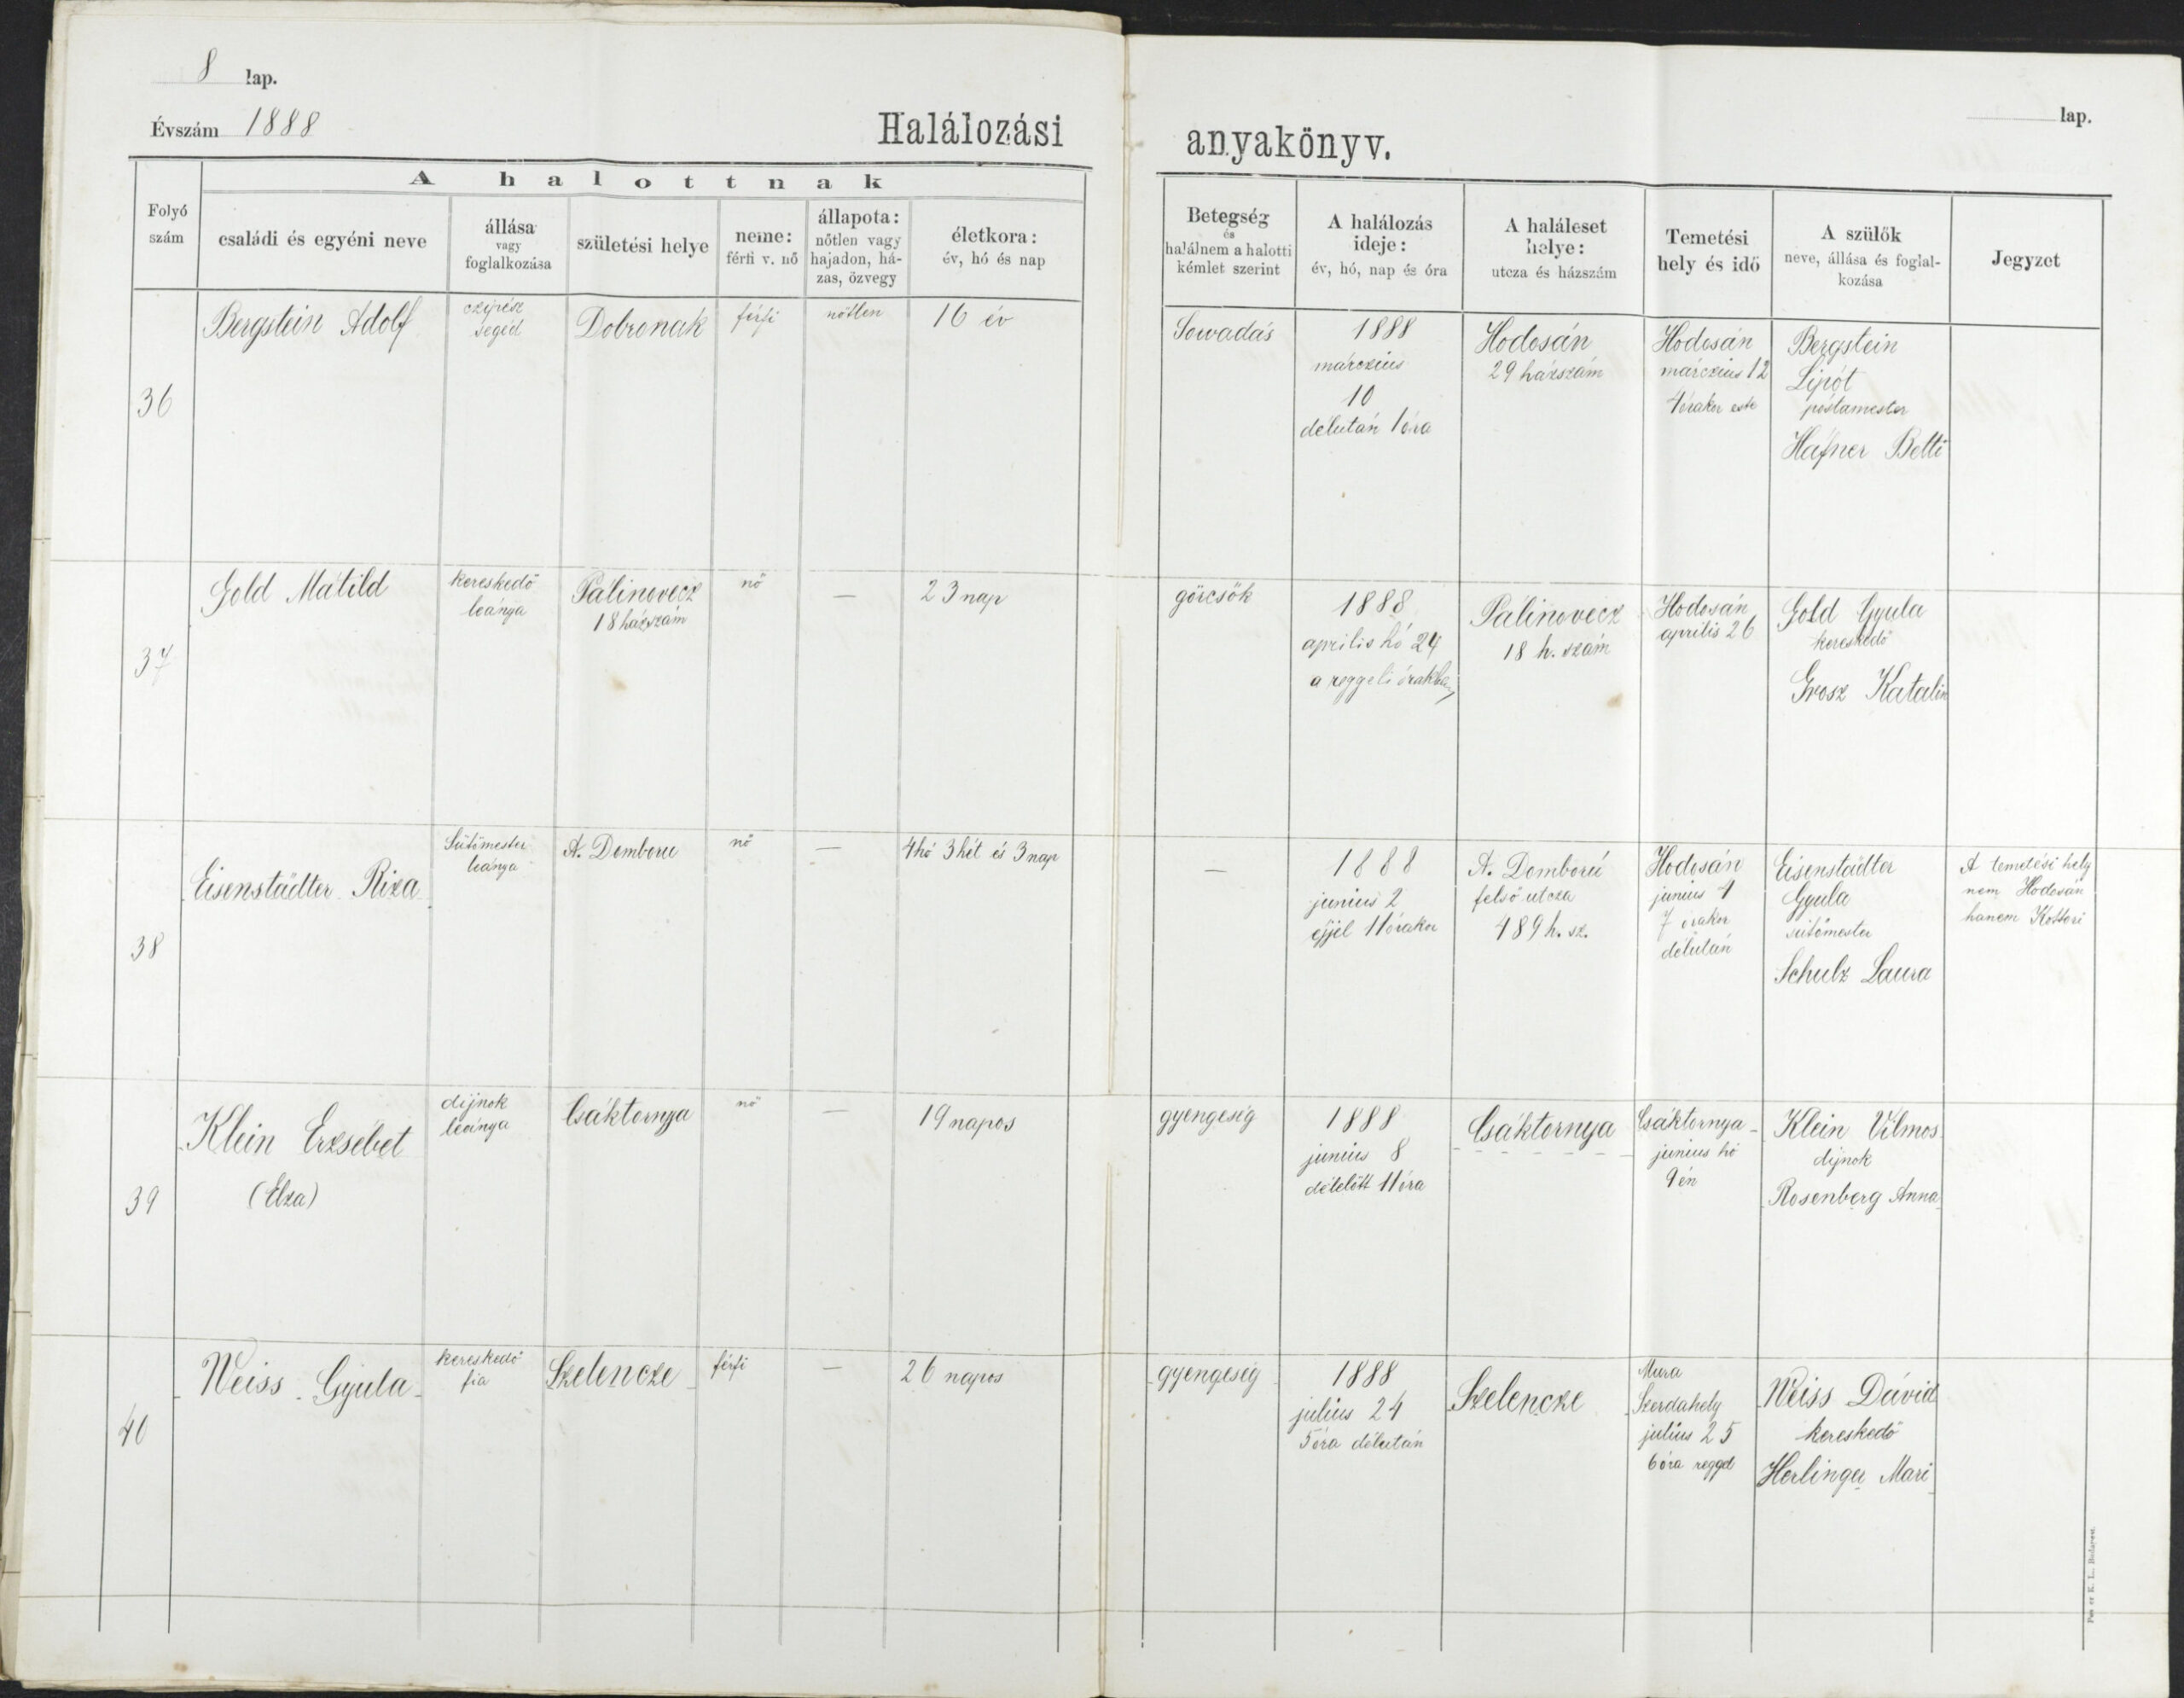 8 lap.
Évszám 1888
Halálozási anyakönyv.
lap.
A halottnak
Folyó szám
családi és egyéni neve
állása vagy foglalkozása
születési helye
neme: férfi v. nő
állapota: nőtlen vagy hajadon, házas, özvegy
életkora: év, hó és nap
Betegség és halálnem a halotti kémlet szerint
A halálozás ideje: év, hó, nap és óra
A haláleset helye: utcza és házszám
Temetési hely és idő
A szülők neve, állása és foglalkozása
Jegyzet
36
Bergstein Adolf
czipész
segéd
Dobronak
férfi
nőtlen
16 év
Sorvadás
1888
márczius
10
délután 1 óra
Hodosán
29 házszám
Hodosán
márczius 12
4 órakor este
Bergstein
Lipót
póstamester
Hafner Betti
37
Gold Matild
kereskedő
leánya
Pálinovecz
18 házszám
nő
—
23 nap
görcsök
1888
aprilis hó 24
a reggeli órákban
Pálinovecz
18 h. szám
Hodosán
aprilis 26
Gold Gyula
kereskedő
Grosz Katalin
38
Eisenstädter Riza
Sütőmester
leánya
A. Domboru
nő
—
4 hó 3 hét és 3 nap
—
1888
junius 2
éjjel 11 órakor
A. Domború
felső utcza
489 h. sz.
Hodosán
junius 4
7 órakor
délután
Eisenstädter
Gyula
sütőmester
Schulz Laura
A temetési hely
nem Hodosán
hanem Kottori
39
Klein Erzsébet
(Elza)
dijnok
leánya
Csáktornya
nő
—
19 napos
gyengeség
1888
junius 8
délelőtt 11 óra
Csáktornya
Csáktornya
junius hó
9 én
Klein Vilmos
dijnok
Rosenberg Anna
40
Weiss Gyula
kereskedő
fia
Szelencze
férfi
—
26 napos
gyengeség
1888
július 24
5 óra délután
Szelencze
Mura
Szerdahely
július 25
6 óra reggel
Weiss Dávid
kereskedő
Herlinger Mari